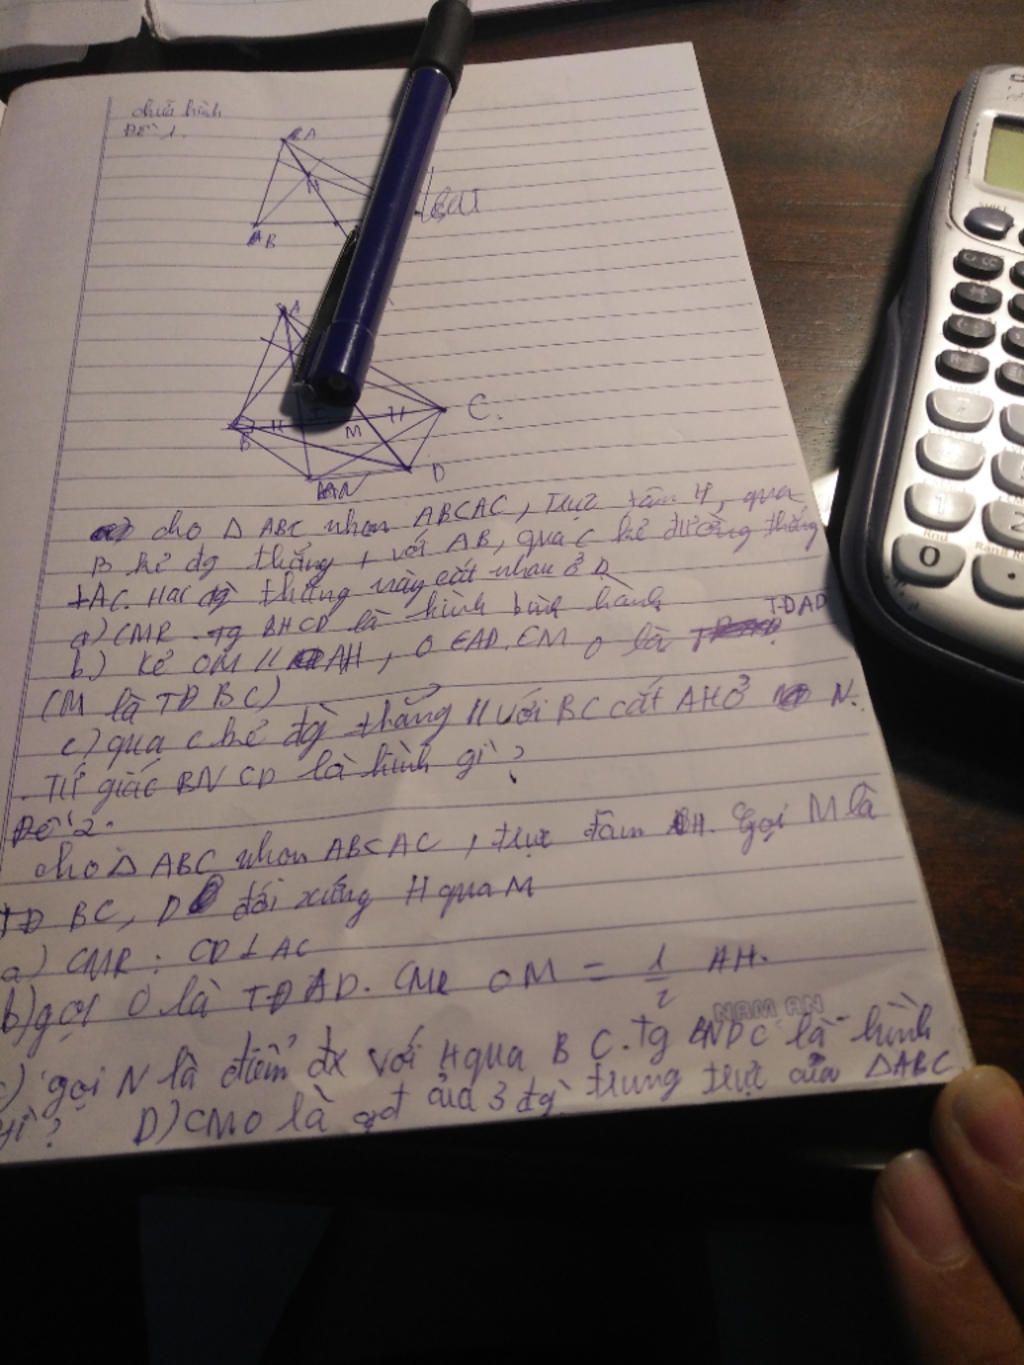 chữa hình
Đề 1.
A
H
B
A
C.
I
B
M
D
N
cho Δ ABC nhọn AB<AC, trực tâm H, qua
B kẻ đg thẳng ⊥ với AB, qua C kẻ đường thẳng
⊥AC. Hai đg thẳng này cắt nhau ở D
a) CMR tg BHCD là hình bình hành
b) Kẻ OM // AH, O ∈ AD. CM O là TĐ AD
(M là TĐ BC)
c) qua C kẻ đg thẳng // với BC cắt AH ở N.
. Tứ giác BNCD là hình gì?
Đề 2.
cho Δ ABC nhọn AB<AC, trực tâm H. Gọi M là
TĐ BC, D đối xứng H qua M
a) CMR: CD⊥AC
b) gọi O là TĐ AD. CMR OM = 1/2 AH.
NAM AN
c) gọi N là điểm đx với H qua BC. Tg BNDC là hình
gì? D) CM O là gđ của 3 đg trung trực của ΔABC
0
1
2